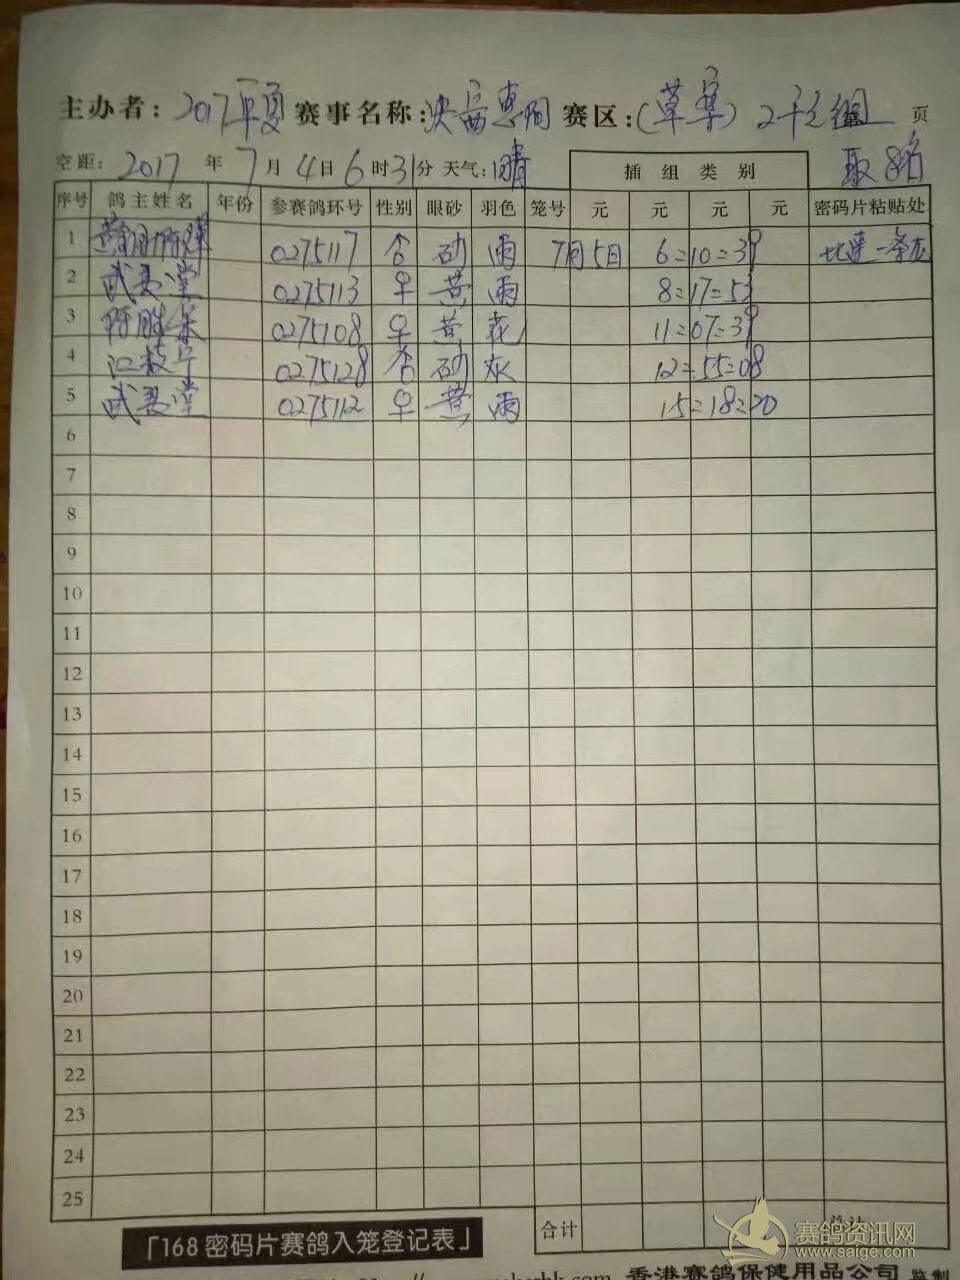 主办者：2017年夏 赛事名称：决赛惠阳 赛区：(草窝) 2千元组 页
空距： 2017 年 7 月 4 日 6 时 31 分 天气：晴 插组类别 取8名
序号 鸽主姓名 年份 参赛鸽环号 性别 眼砂 羽色 笼号 元 元 元 元 密码片粘贴处
1 0275117 砂 雨 7月5日 6=10=39 一条龙
2 武 堂 0275113 ♀ 黄 雨 8=17=53
3 0275108 ♀ 黄 花 11=07=39
4 江 0275128 砂 灰 12=55=08
5 武 堂 0275112 ♀ 黄 雨 15=18=20
6
7
8
9
10
11
12
13
14
15
16
17
18
19
20
21
22
23
24
25
合计 总计
「168密码片赛鸽入笼登记表」
赛鸽资讯网
www.saige.com
香港赛鸽保健用品公司 监制